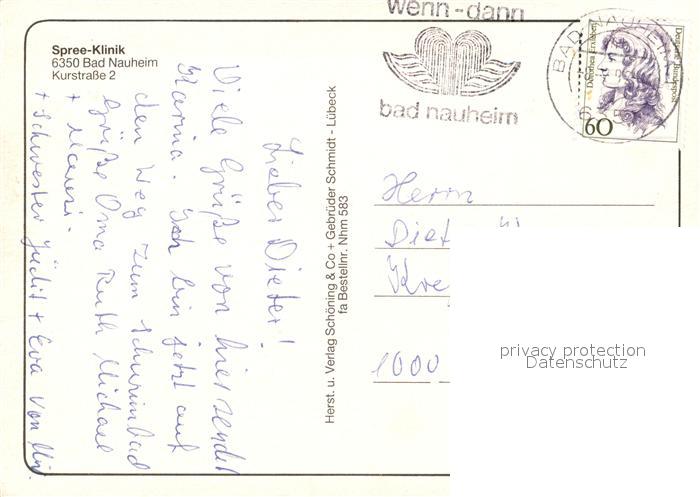 Spree-Klinik
6350 Bad Nauheim
Kurstraße 2
wenn-dann
bad nauheim
BAD NAUHEIM
6
Dorothea Erxleben
Deutsche Bundespost
60
Lieber Dieter!
Viele Grüße von hier sendet
Karina. Ich bin jetzt auf
den Weg zum Schwimbad
Grüße Oma Ruth Michael
+
+ Schwester Jüdit + Eva von
Herst. u. Verlag Schöning & Co + Gebrüder Schmidt - Lübeck
fa Bestellnr. Nhm 583
Herrn
Diet
Kre
1000
privacy protection
Datenschutz